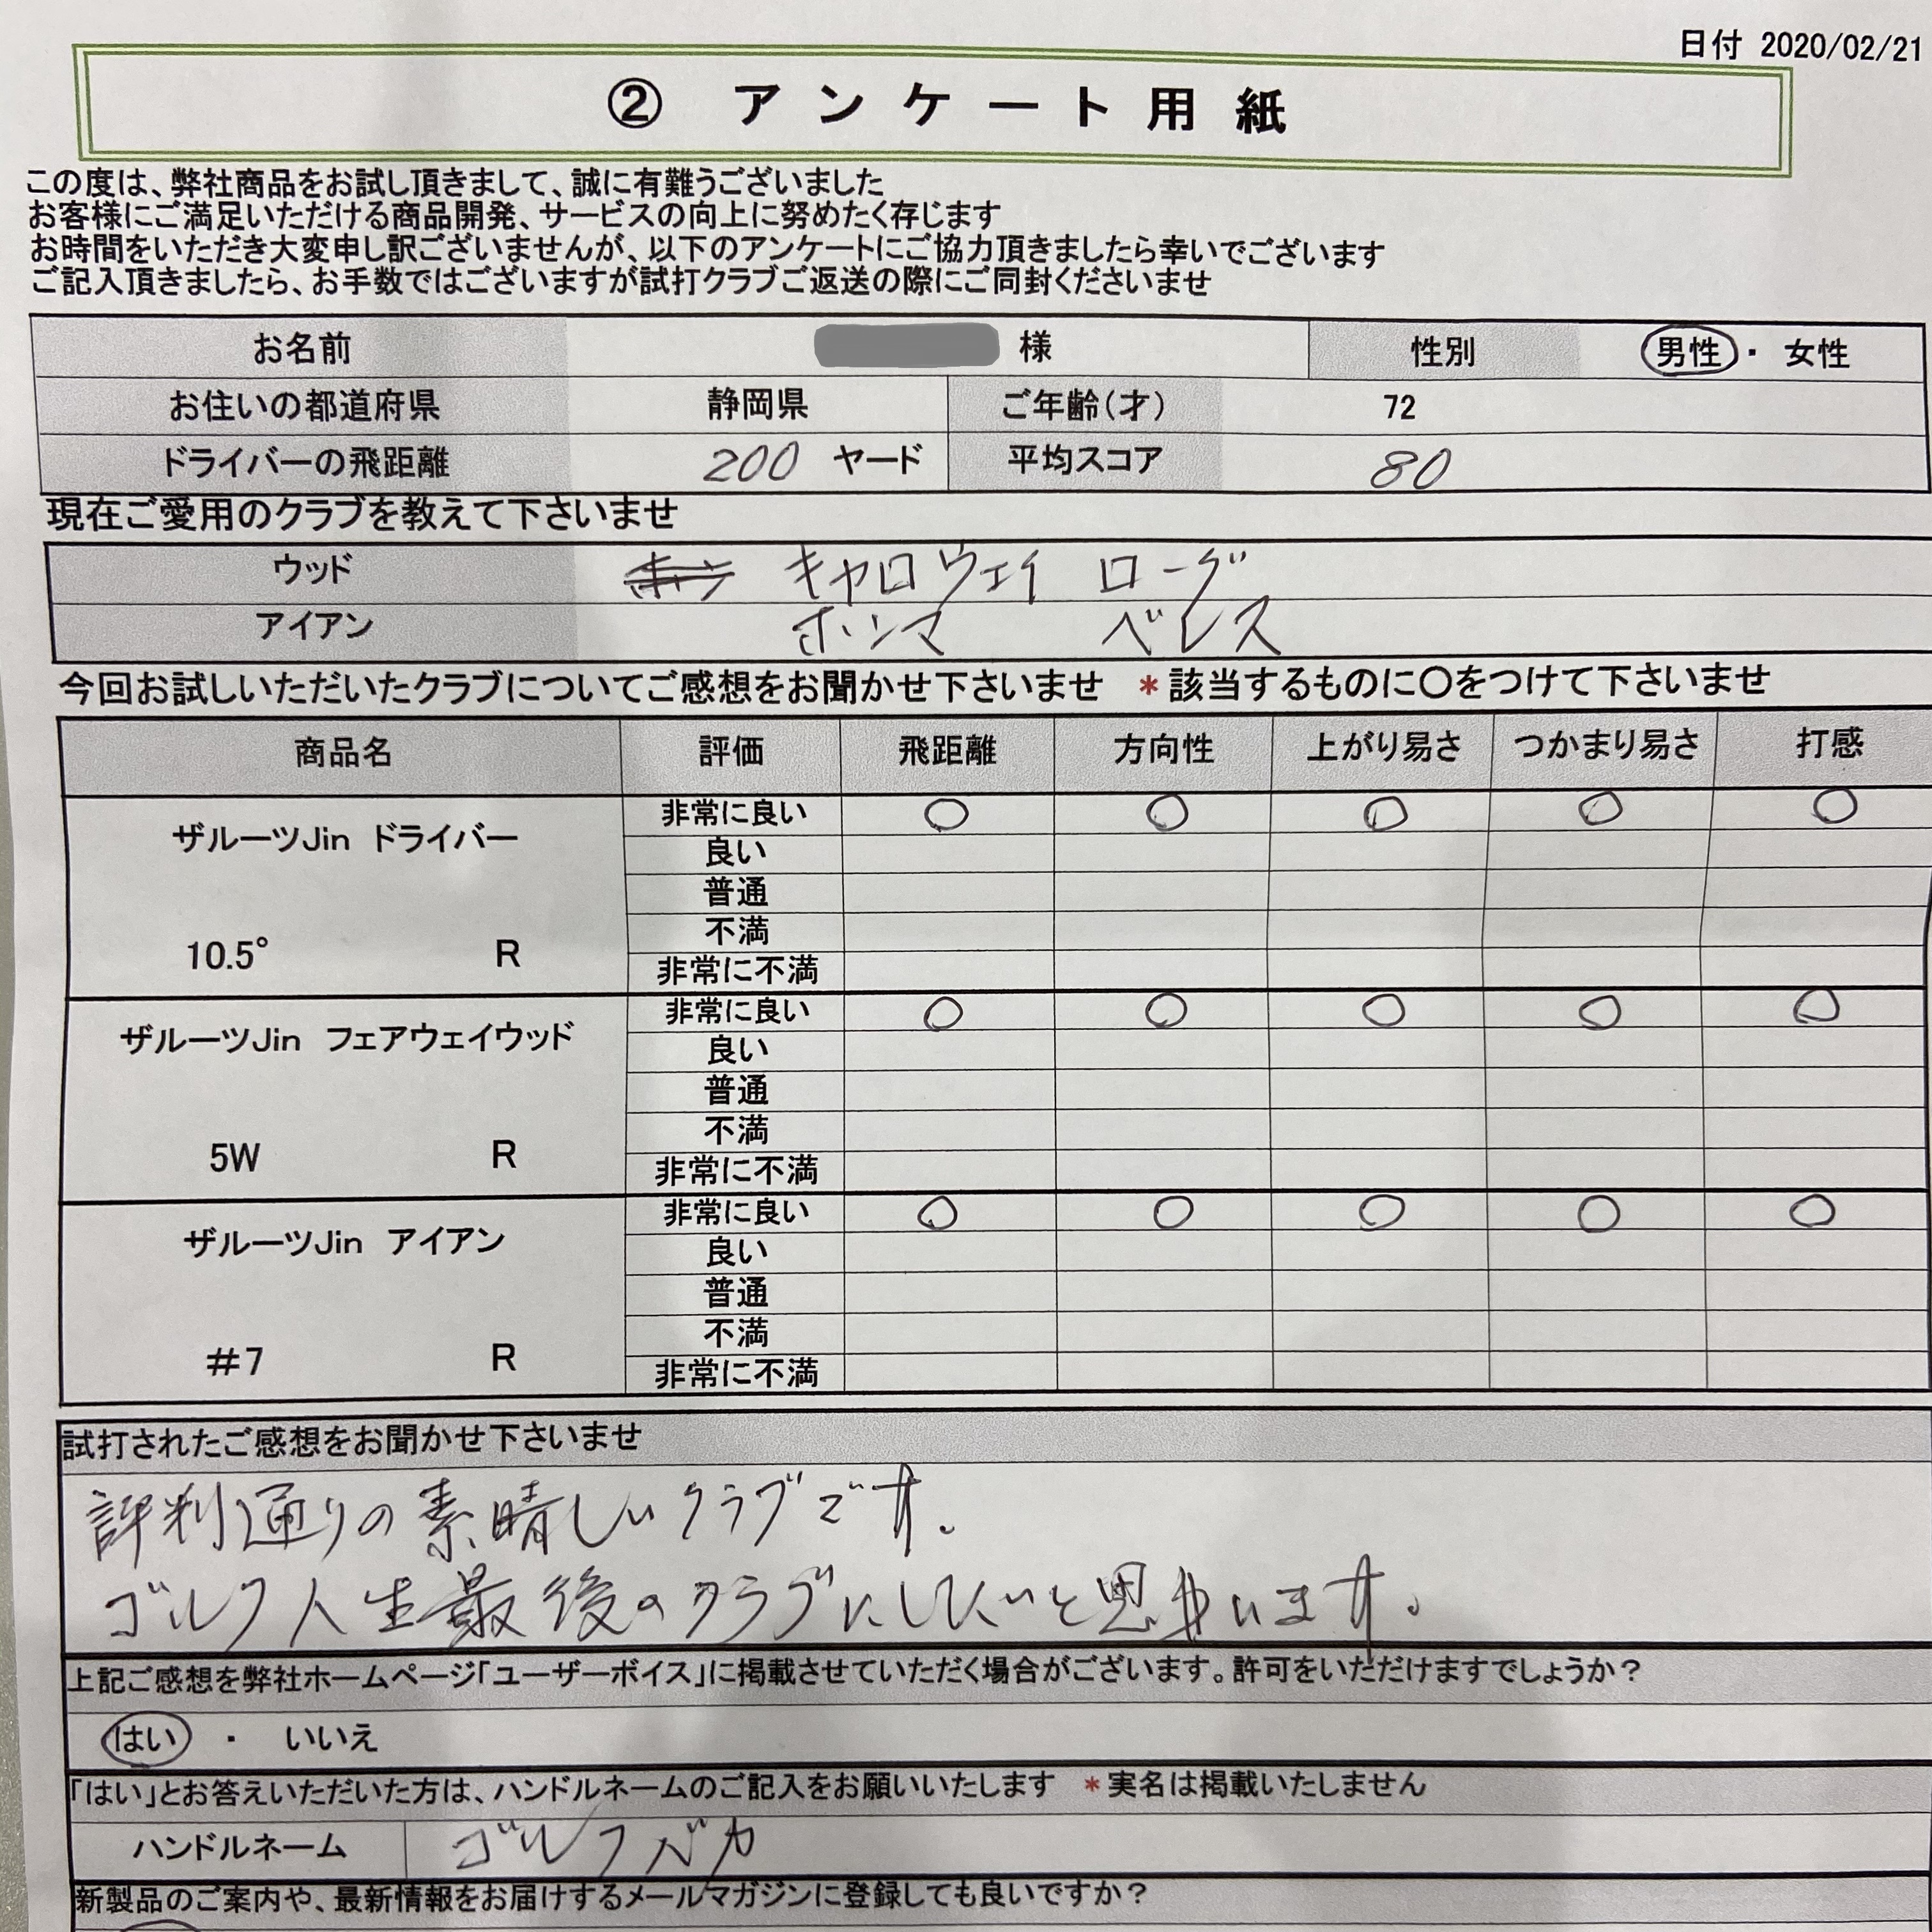 日付 2020/02/21
② アンケート用紙
この度は、弊社商品をお試し頂きまして、誠に有難うございました
お客様にご満足いただける商品開発、サービスの向上に努めたく存じます
お時間をいただき大変申し訳ございませんが、以下のアンケートにご協力頂きましたら幸いでございます
ご記入頂きましたら、お手数ではございますが試打クラブご返送の際にご同封くださいませ
お名前 様 性別 男性・女性
お住いの都道府県 静岡県 ご年齢(才) 72
ドライバーの飛距離 200 ヤード 平均スコア 80
現在ご愛用のクラブを教えて下さいませ
ウッド キャロウェイ ローグ
アイアン ホンマ ベレス
今回お試しいただいたクラブについてご感想をお聞かせ下さいませ *該当するものに〇をつけて下さいませ
商品名 評価 飛距離 方向性 上がり易さ つかまり易さ 打感
ザルーツJin ドライバー
10.5° R
非常に良い ○ ○ ○ ○ ○
良い
普通
不満
非常に不満
ザルーツJin フェアウェイウッド
5W R
非常に良い ○ ○ ○ ○ ○
良い
普通
不満
非常に不満
ザルーツJin アイアン
#7 R
非常に良い ○ ○ ○ ○ ○
良い
普通
不満
非常に不満
試打されたご感想をお聞かせ下さいませ
評判通りの素晴しいクラブです。
ゴルフ人生最後のクラブにしたいと思います。
上記ご感想を弊社ホームページ「ユーザーボイス」に掲載させていただく場合がございます。許可をいただけますでしょうか?
はい ・ いいえ
「はい」とお答えいただいた方は、ハンドルネームのご記入をお願いいたします *実名は掲載いたしません
ハンドルネーム ゴルフバカ
新製品のご案内や、最新情報をお届けするメールマガジンに登録しても良いですか?